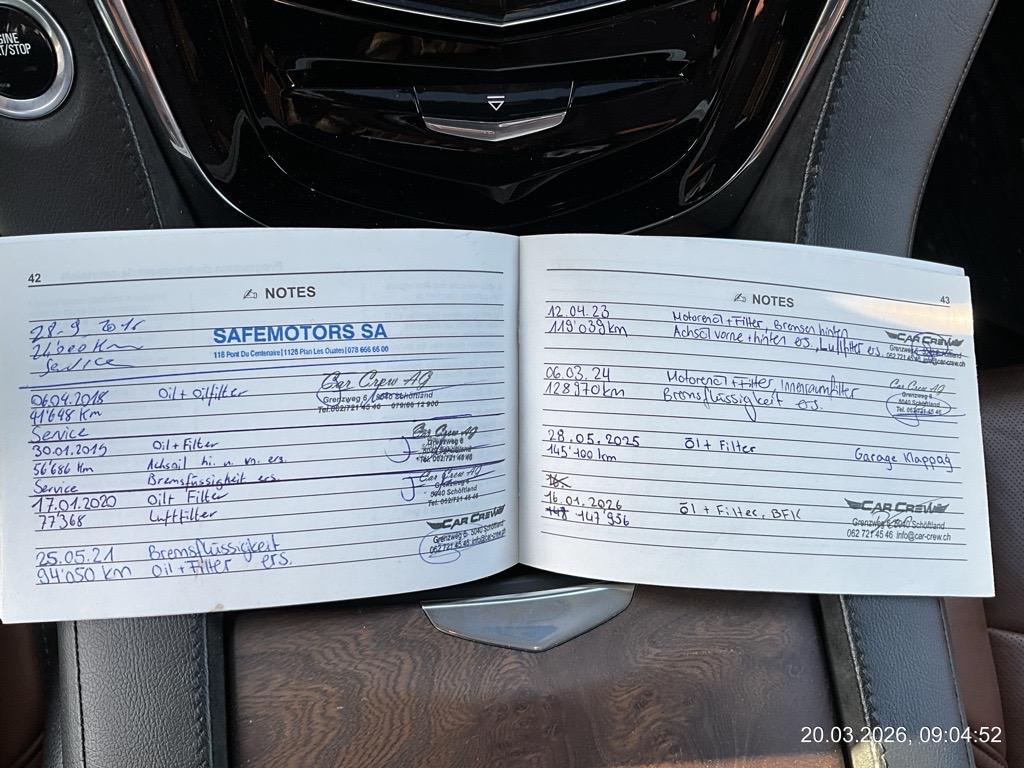 ENGINE
START/STOP
42
NOTES
28.9 2016
24'000 Km
Service
SAFEMOTORS SA
118 Pont Du Centenaire | 1128 Plan Les Ouates | 078 666 66 00
06.04.2018 Oil + Oilfilter
41'648 Km
Car Crew AG
Grenzweg 6, 5040 Schöftland
Tel. 062/721 45 46
Service
30.01.2019 Oil + Filter
56'686 Km Achsöil hi. u. vn. ers.
Car Crew AG
Grenzweg 6
Tel. 062/721 45 46
Service Bremsflüssigkeit ers.
17.01.2020 Oilt Filter
77'368 Luftfilter
Car Crew AG
Grenzweg 6
5040 Schöftland
Tel. 062/721 45 46
25.05.21 Bremsflüssigkeit
94'050 km Oil + Filter ers.
CAR CREW
Grenzweg 6 - 5040 Schöftland
062 721 45 46 info@car-crew.ch
43
NOTES
12.04.23 Motorenöl + Filter, Bremsen hinten
119'039 km Achsöl vorne + hinten ers., Luftfilter ers.
CAR CREW
Grenzweg 6, 5040 Schöftland
062 721 45 46 info@car-crew.ch
06.03.24 Motorenöl + Filter, Innenraumfilter
128'570 km Bremsflüssigkeit ers.
Car Crew AG
Grenzweg 6
5040 Schöftland
Tel. 062/721 45 46
28.05.2025 Öl + Filter
145'100 km Garage Klappag
16.01.2026 Öl + Filter, BFK
147'936
CAR CREW
Grenzweg 6, 5040 Schöftland
062 721 45 46 Info@car-crew.ch
20.03.2026, 09:04:52